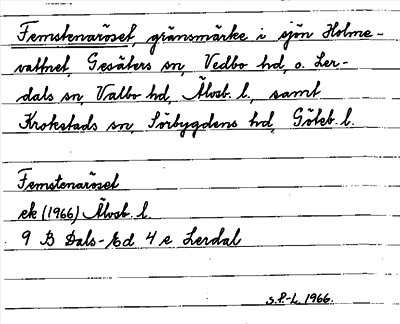 Femstenaröset, gränsmärke i sjön Holme-
vattnet, Gesäters sn, Vedbo hd, o. Ler-
dals sn, Valbo hd, Älvsb. l., samt
Krokstads sn, Sörbygdens hd, Göteb. l.
Femstenaröset
ek (1966) Älvsb. l.
9 B Dals-Ed 4 e Lerdal
S.P-L. 1966.